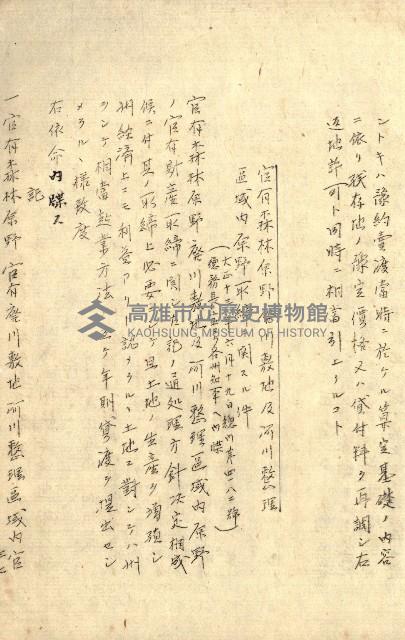 ントキハ豫約賣渡當時ニ於ケル算定基礎ノ内容
ニ依リ殘存地ノ豫定價格又ハ貸付料ヲ再調シ右
返地許可ト同時ニ相當引上クルコト
官有森林原野 川敷地及河川整理
區域内原野取締 關スル件
大正十 六月十九日總内第四一八二號
總務長官 各州知事 内牒
官有森林原野廢川敷地及河川整理區域内原野
ノ官有財産取締ニ關シ 記ノ通処理方針決定相成
候ニ付其ノ取締上必要 且土地ノ生産ヲ増殖シ
州経済上ニモ利益アリ 認メラルヽ土地ニ對シテハ州
ヲシテ相當起業方法 ヶ年期貸渡ヲ提出セシ
メラルヽ樣致度
右依命内牒ス
記
一 官有森林原野 官有廢川敷地 河川整理區域内官
高雄市立歷史博物館
KAOHSIUNG MUSEUM OF HISTORY